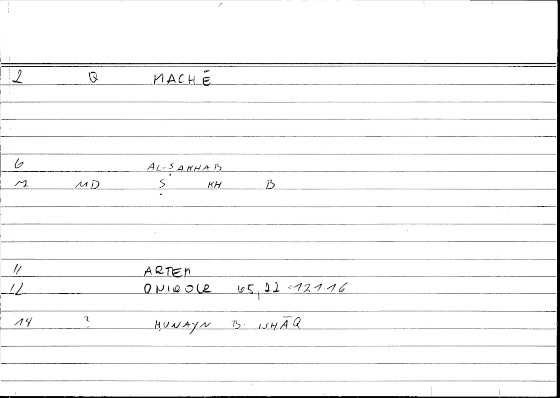 2 Q MACHĒ
6 AL-ṢAKHAB
M MD Ṣ KH B
11 ARTEM
12 ONIROCR 65,22-121.16
14 ? ḤUNAYN B. ISḤĀQ